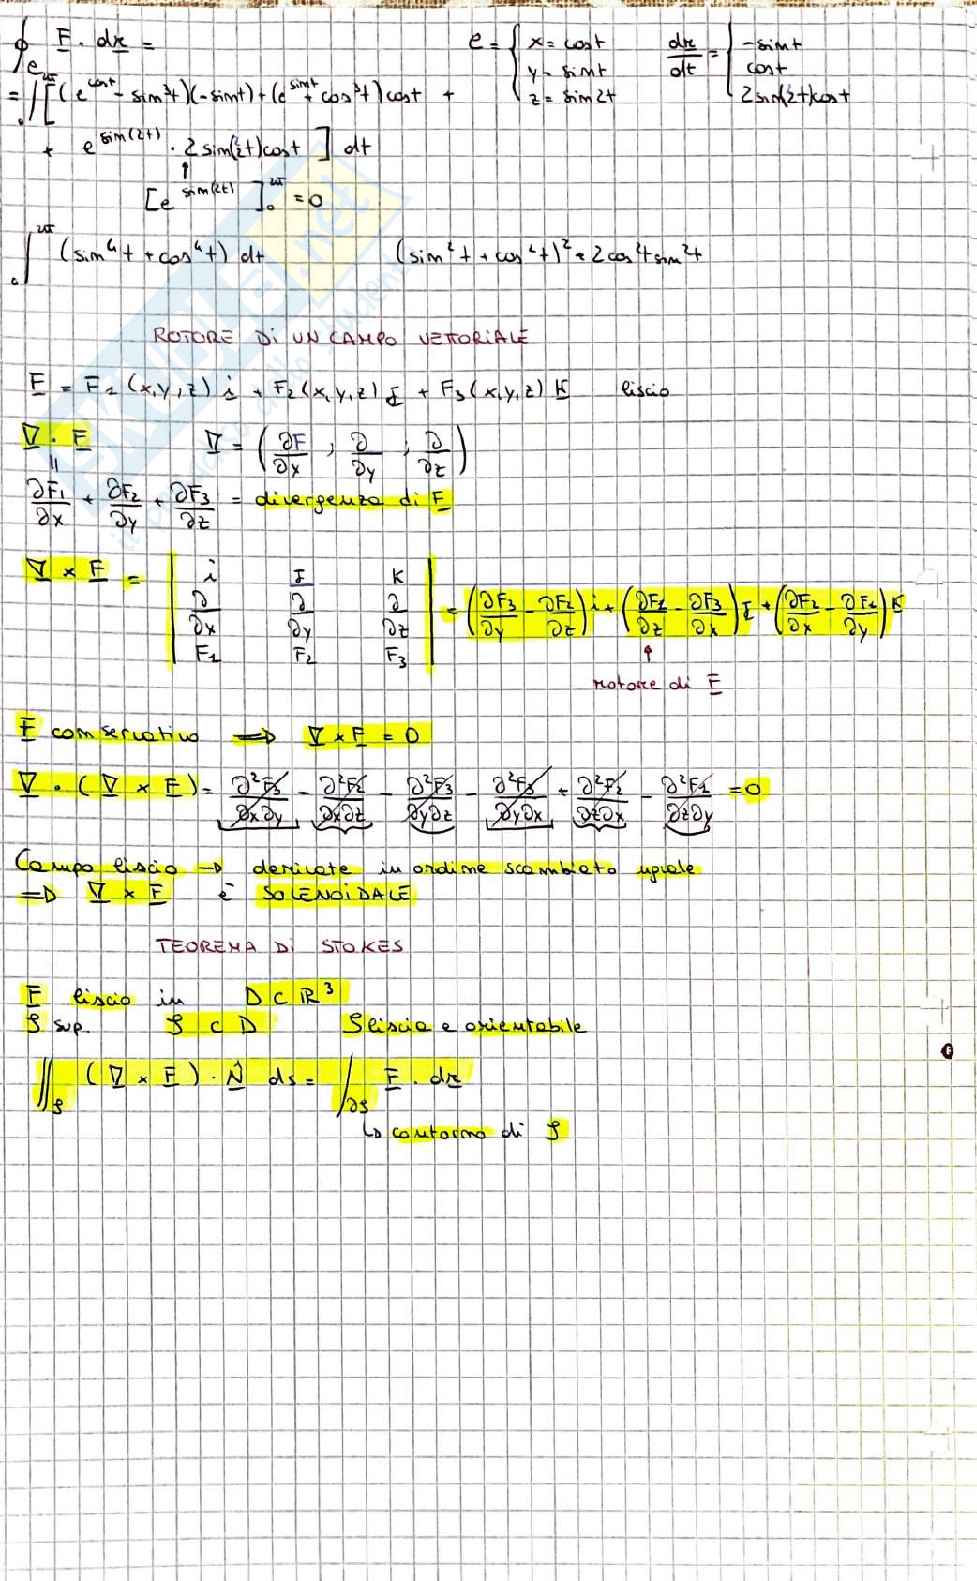 ∮_C F · dr =
C = { x = cost
y = sint
z = sin2t
dr/dt = { -sint
cost
2sin(2t)cost
= ∫_0^2π [(e^cost - sin³t)(-sint) + (e^sint + cos³t) cost +
+ e^sin(2t) · 2sin(2t)cost ] dt
↑
[e^sin(2t)]_0^2π = 0
∫_0^2π (sin⁴t + cos⁴t) dt (sin²t + cos²t)² - 2cos²t sin²t
ROTORE DI UN CAMPO VETTORIALE
F = F1 (x,y,z) i + F2 (x,y,z) J + F3 (x,y,z) K liscio
∇ · F ∇ = (∂F/∂x , ∂/∂y , ∂/∂z)
॥
∂F1/∂x + ∂F2/∂y + ∂F3/∂z = divergenza di F
∇ × F = | i J K
∂/∂x ∂/∂y ∂/∂z
F1 F2 F3 | = (∂F3/∂y - ∂F2/∂z) i + (∂F1/∂z - ∂F3/∂x) J + (∂F2/∂x - ∂F1/∂y) K
↑
rotore di F
F conservativo ⇒ ∇ × F = 0
∇ · (∇ × F) = ∂²F3/∂x∂y - ∂²F2/∂x∂z - ∂²F3/∂y∂z - ∂²F3/∂y∂x + ∂²F2/∂z∂x - ∂²F1/∂z∂y = 0
Campo liscio → derivate in ordine scambiato uguale
⇒ ∇ × F è SOLENOIDALE
TEOREMA DI STOKES
F liscio in D ⊂ R³
S sup. S ⊂ D S liscia e orientabile
∬_S (∇ × F) · N̂ ds = ∫_∂S F · dr
↳ contorno di S